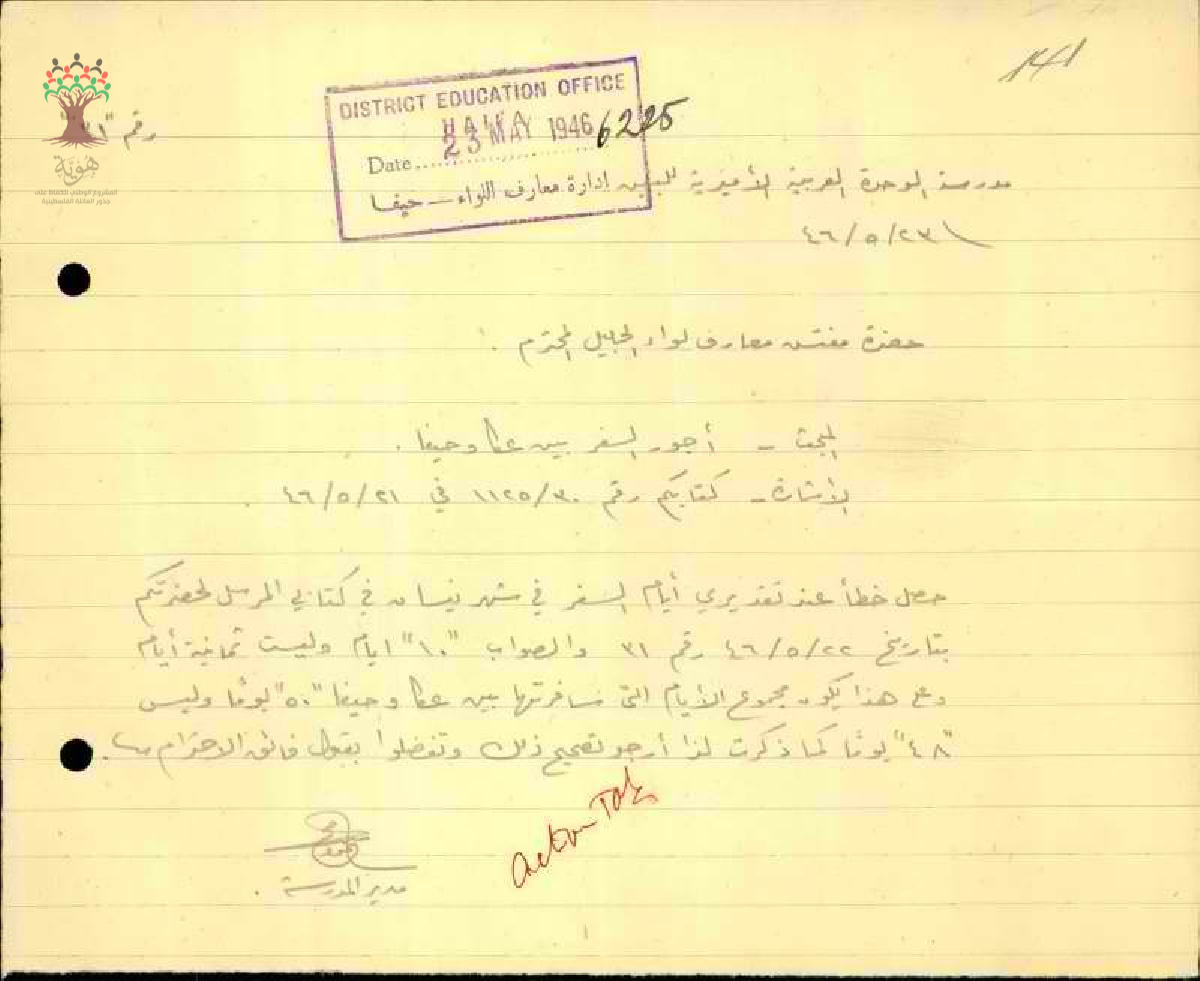 ١٤١
DISTRICT EDUCATION OFFICE
HAIFA
23 MAY 1946
6225
Date
إدارة معارف اللواء — حيفا
رقم "٣١"
هُوِيَّة
المشروع الوطني للحفاظ على
جذور العائلة الفلسطينية
مدرسة الوحدة العربية الأميرية للبنين
٤٦/٥/٢٣
حضرة مفتش معارف لواء الجليل المحترم .
المبحث - أجور السفر بين عكا وحيفا .
الأشارة - كتابكم رقم ١١٢٥/٣٠ في ٤٦/٥/٢١ .
حصل خطأ عند تقديري أيام السفر في شهر نيسان في كتابي المرسل لحضرتكم
بتاريخ ٤٦/٥/٢٢ رقم ٣١ والصواب "١٠" ايام وليست ثمانية أيام
وعلى هذا يكون مجموع الأيام التي سافرتها بين عكا وحيفا "٥٠" يومًا وليس
"٤٨" يومًا كما ذكرت لذا أرجو تصحيح ذلك وتفضلوا بقبول فائق الاحترام
action
مدير المدرسة .